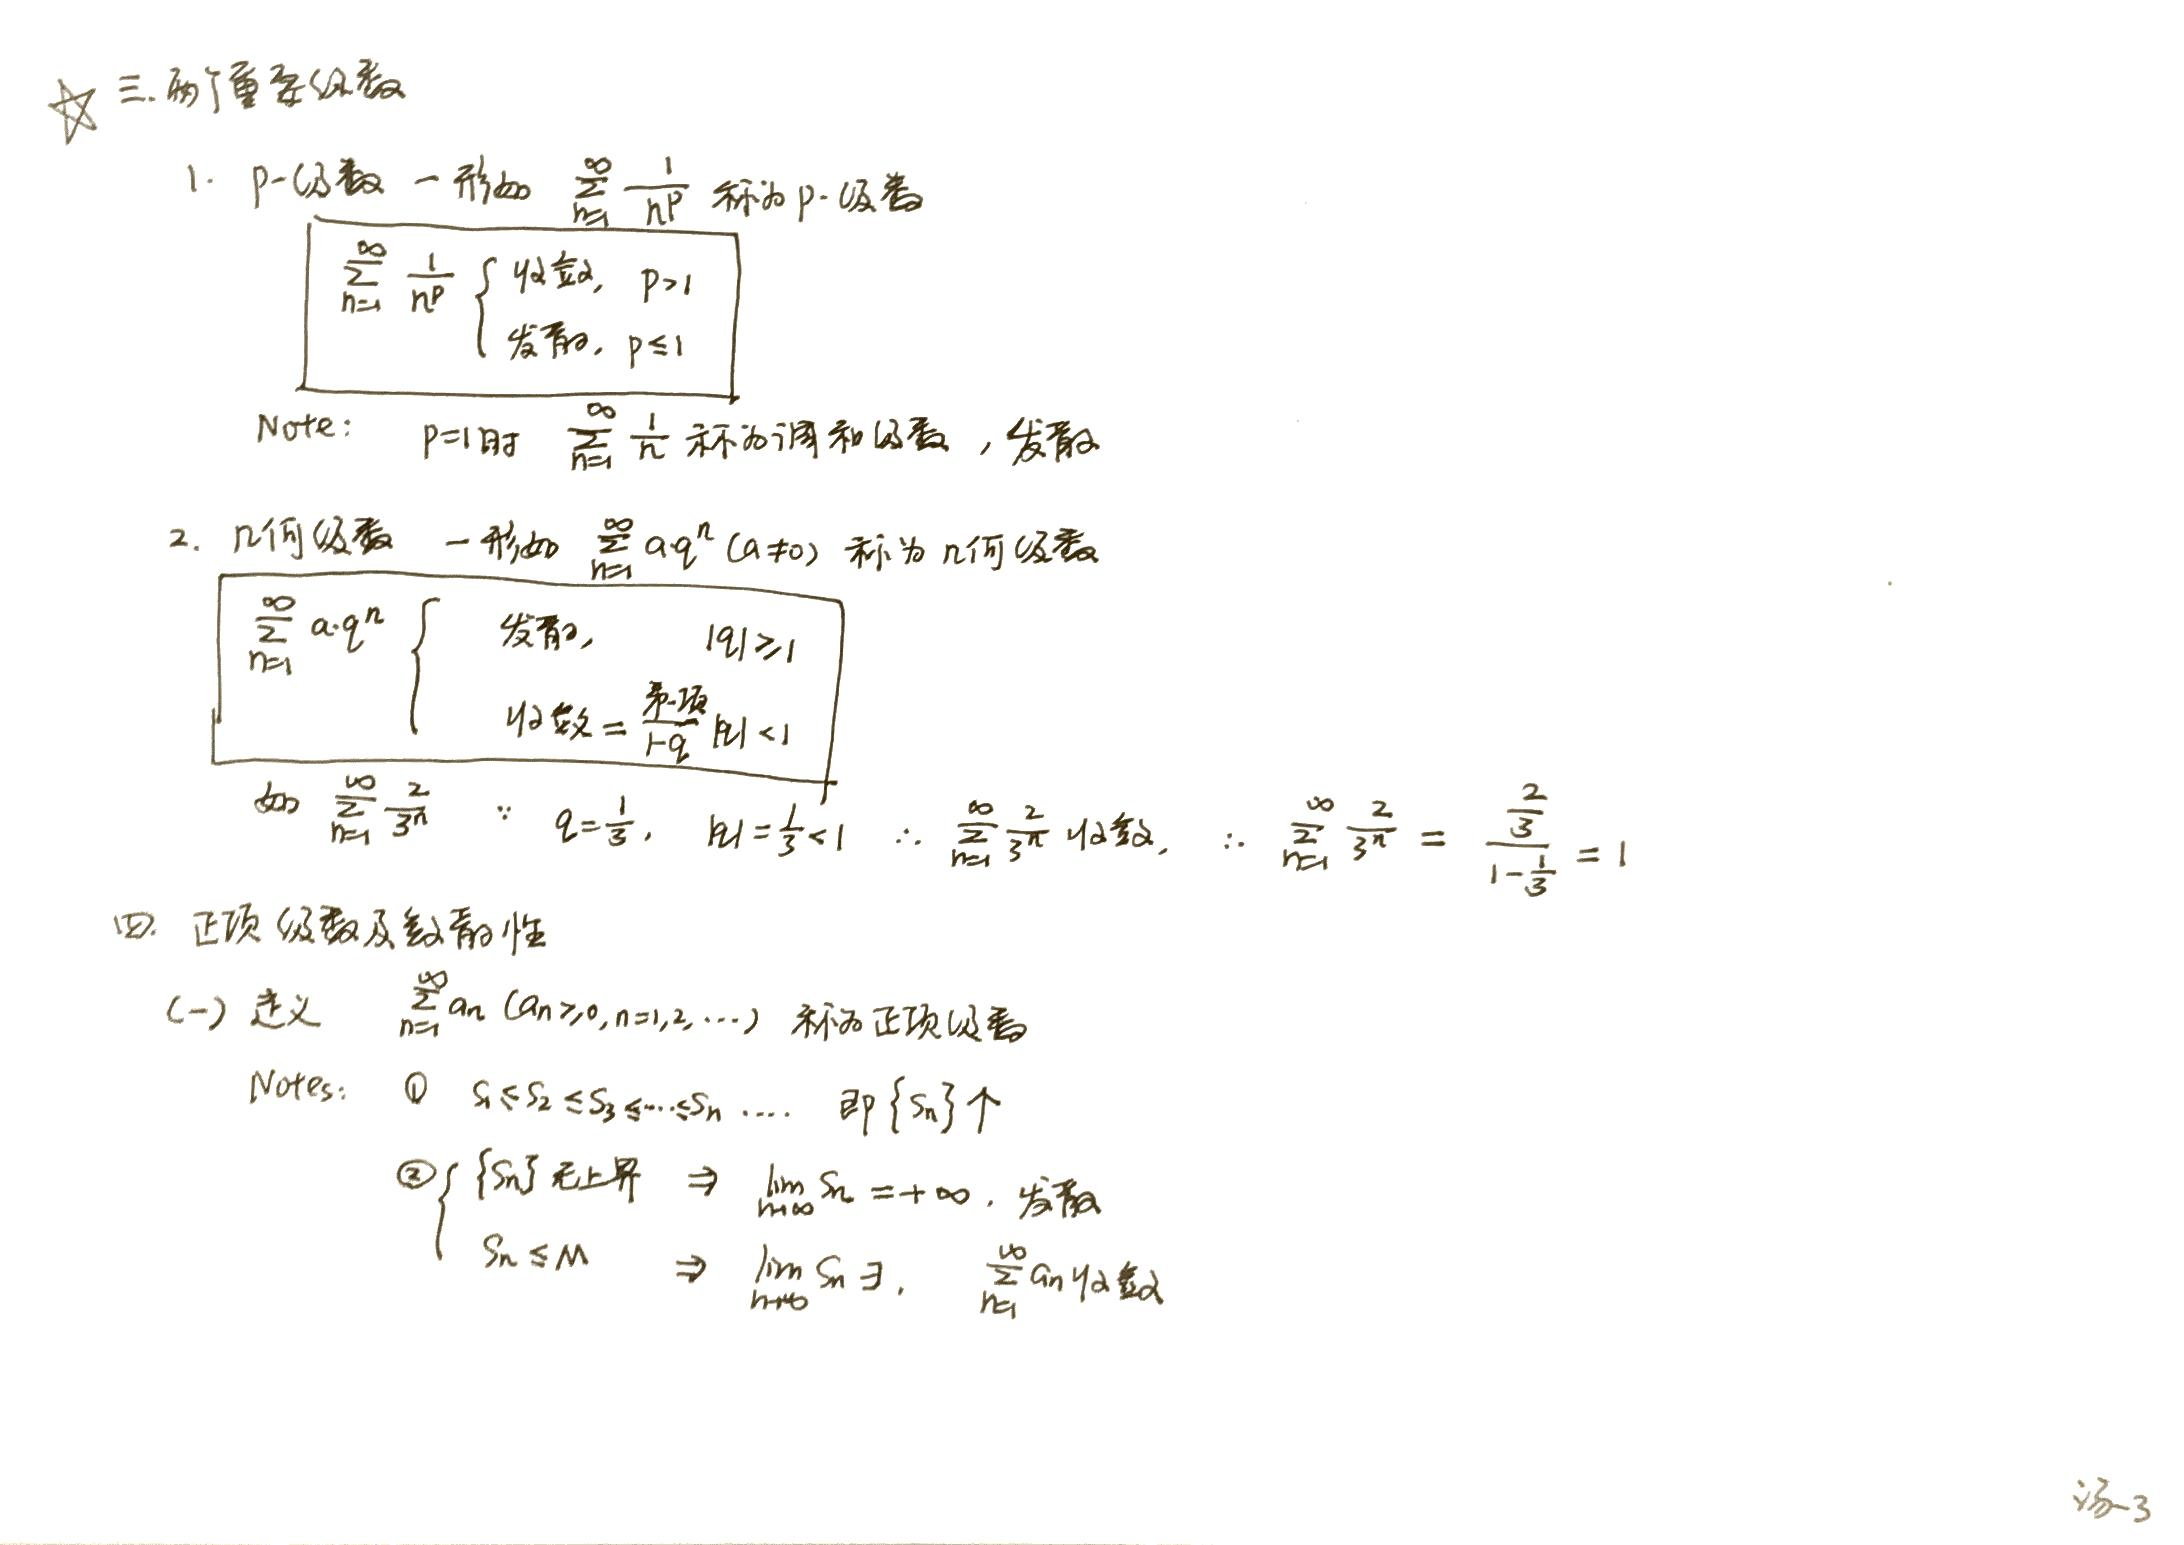 ☆ 三. 两个重要级数
1. p-级数 — 形如 \sum_{n=1}^{∞} \frac{1}{n^p} 称为p-级数
\sum_{n=1}^{∞} \frac{1}{n^p} { 收敛, p>1
发散, p≤1
Note: p=1时 \sum_{n=1}^{∞} \frac{1}{n} 称为调和级数, 发散
2. 几何级数 — 形如 \sum_{n=1}^{∞} a·q^n (a≠0) 称为几何级数
\sum_{n=1}^{∞} a·q^n { 发散, |q|≥1
收敛 = \frac{第一项}{1-q} |q|<1
如 \sum_{n=1}^{∞} \frac{2}{3^n} ∵ q=\frac{1}{3}, |q|=\frac{1}{3}<1 ∴ \sum_{n=1}^{∞} \frac{2}{3^n} 收敛, ∴ \sum_{n=1}^{∞} \frac{2}{3^n} = \frac{\frac{2}{3}}{1-\frac{1}{3}} = 1
四. 正项级数及敛散性
(一) 定义 \sum_{n=1}^{∞} a_n (a_n≥0, n=1,2,…) 称为正项级数
Notes: ① S_1≤S_2≤S_3≤…≤S_n …. 即{S_n}↑
② { {S_n}无上界 ⇒ \lim_{n→∞} S_n = +∞. 发散
S_n≤M ⇒ \lim_{n→∞} S_n ∃, \sum_{n=1}^{∞} a_n 收敛
汤-3